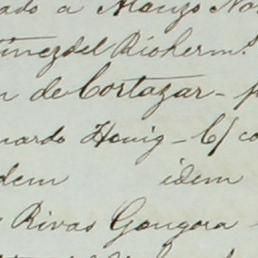 ado a Alonzo No
tinez del Rio herm.ˢ
n de Cortazar - p
uardo Honig - C/ co
dem idem
Rivas Gongora -